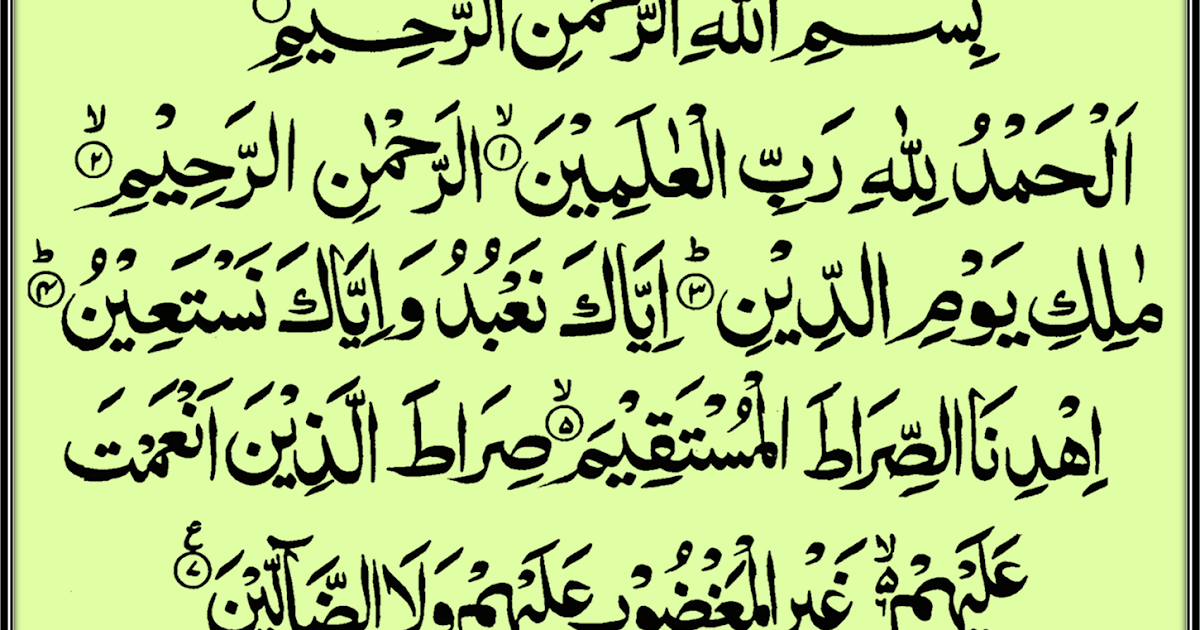 بِسْمِ اللّٰهِ الرَّحْمٰنِ الرَّحِيْمِ
اَلْحَمْدُ لِلّٰهِ رَبِّ الْعٰلَمِيْنَ ۙ‏﴿۱﴾ الرَّحْمٰنِ الرَّحِيْمِ ۙ‏﴿۲﴾
مٰلِكِ يَوْمِ الدِّيْنِ ؕ‏﴿۳﴾ اِيَّاكَ نَعْبُدُ وَاِيَّاكَ نَسْتَعِيْنُ ؕ‏﴿۴﴾
اِهْدِنَا الصِّرَاطَ الْمُسْتَقِيْمَ ۙ‏﴿۵﴾ صِرَاطَ الَّذِيْنَ اَنْعَمْتَ
عَلَيْهِمْ ۙ۬ غَيْرِ الْمَغْضُوْبِ عَلَيْهِمْ وَلَا الضَّآلِّيْنَ‏﴿۷﴾ ع